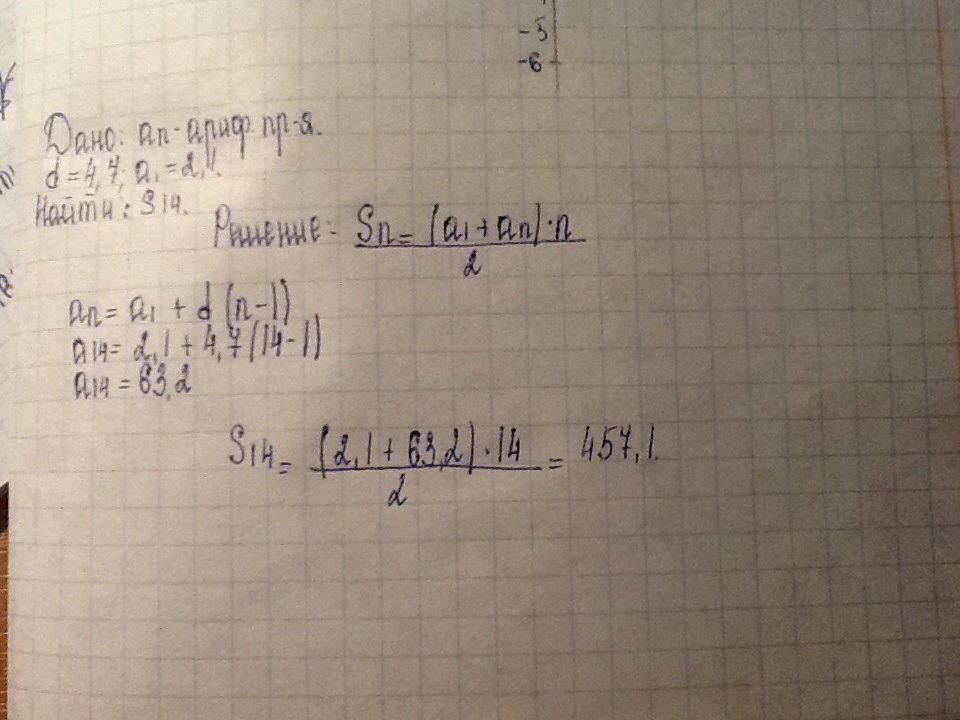 -5
-6
Дано: an - ариф. пр-я.
d = 4,7; a1 = 2,1.
Найти: S14.
Решение: Sn = (a1 + an) · n
2
an = a1 + d (n-1)
a14 = 2,1 + 4,7 (14-1)
a14 = 63,2
S14 = (2,1 + 63,2) · 14 = 457,1.
2